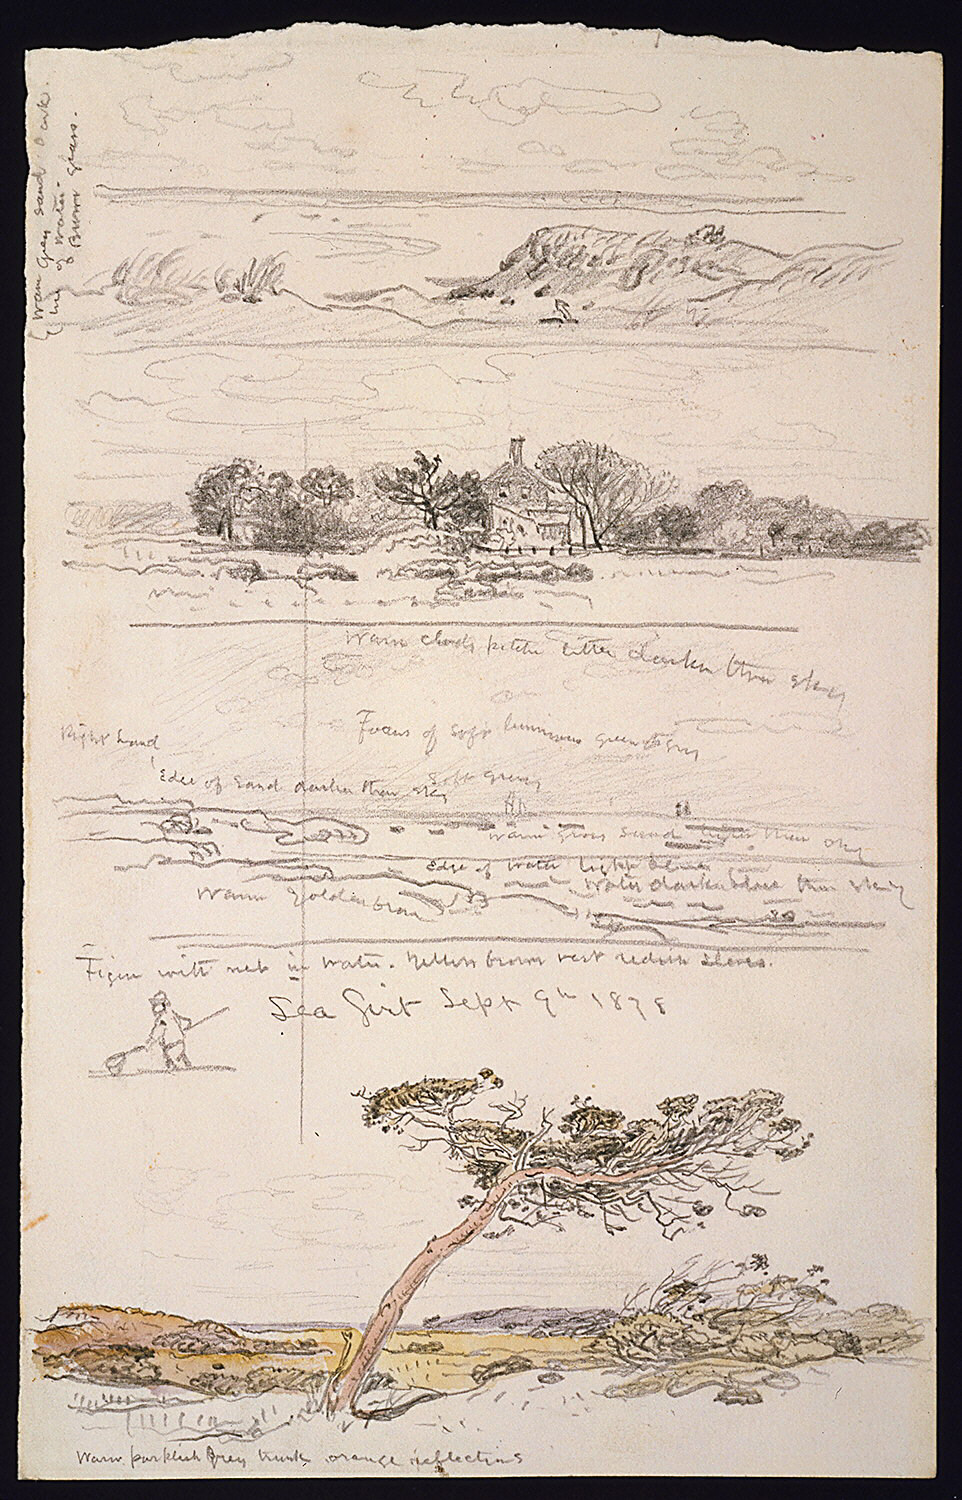 Warm Grey sand dark
line of water
Brown grass.
Warm clouds little darker than sky
Focus of soft luminous greenish grey
Right hand
Edge of sand darker than sky
Soft grey
Warm grey sand lighter than sky
Edge of water light blue
Water darker blue than sky
Warm Golden brown
Figure with net in water. Yellow brown vest redish sleeves.
Sea Girt Sept 9th 1878
Warm purklish Grey trunk orange reflections